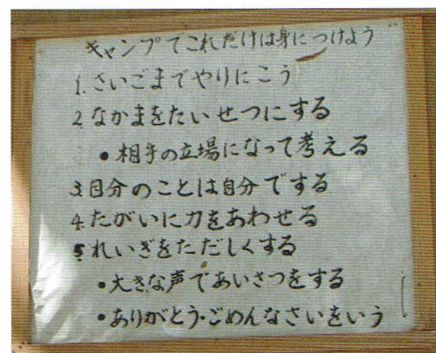 キャンプでこれだけは身につけよう
1.さいごまでやりにこう
2.なかまをたいせつにする
•相手の立場になって考える
3.自分のことは自分でする
4.たがいに力をあわせる
5.れいぎをただしくする
•大きな声であいさつをする
•ありがとう・ごめんなさいをいう